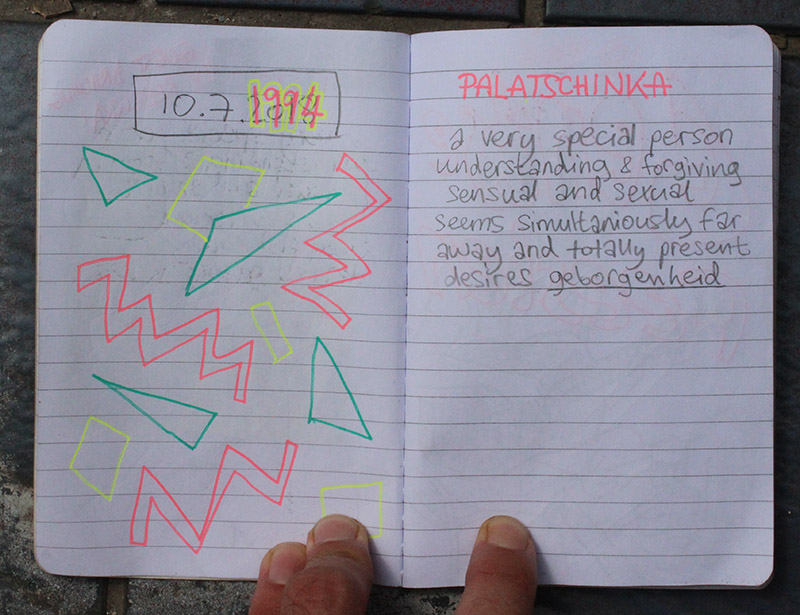 10.7.1994
PALATSCHINKA
a very special person
understanding & forgiving
sensual and sexual
seems simultaniously far
away and totally present
desires geborgenheid